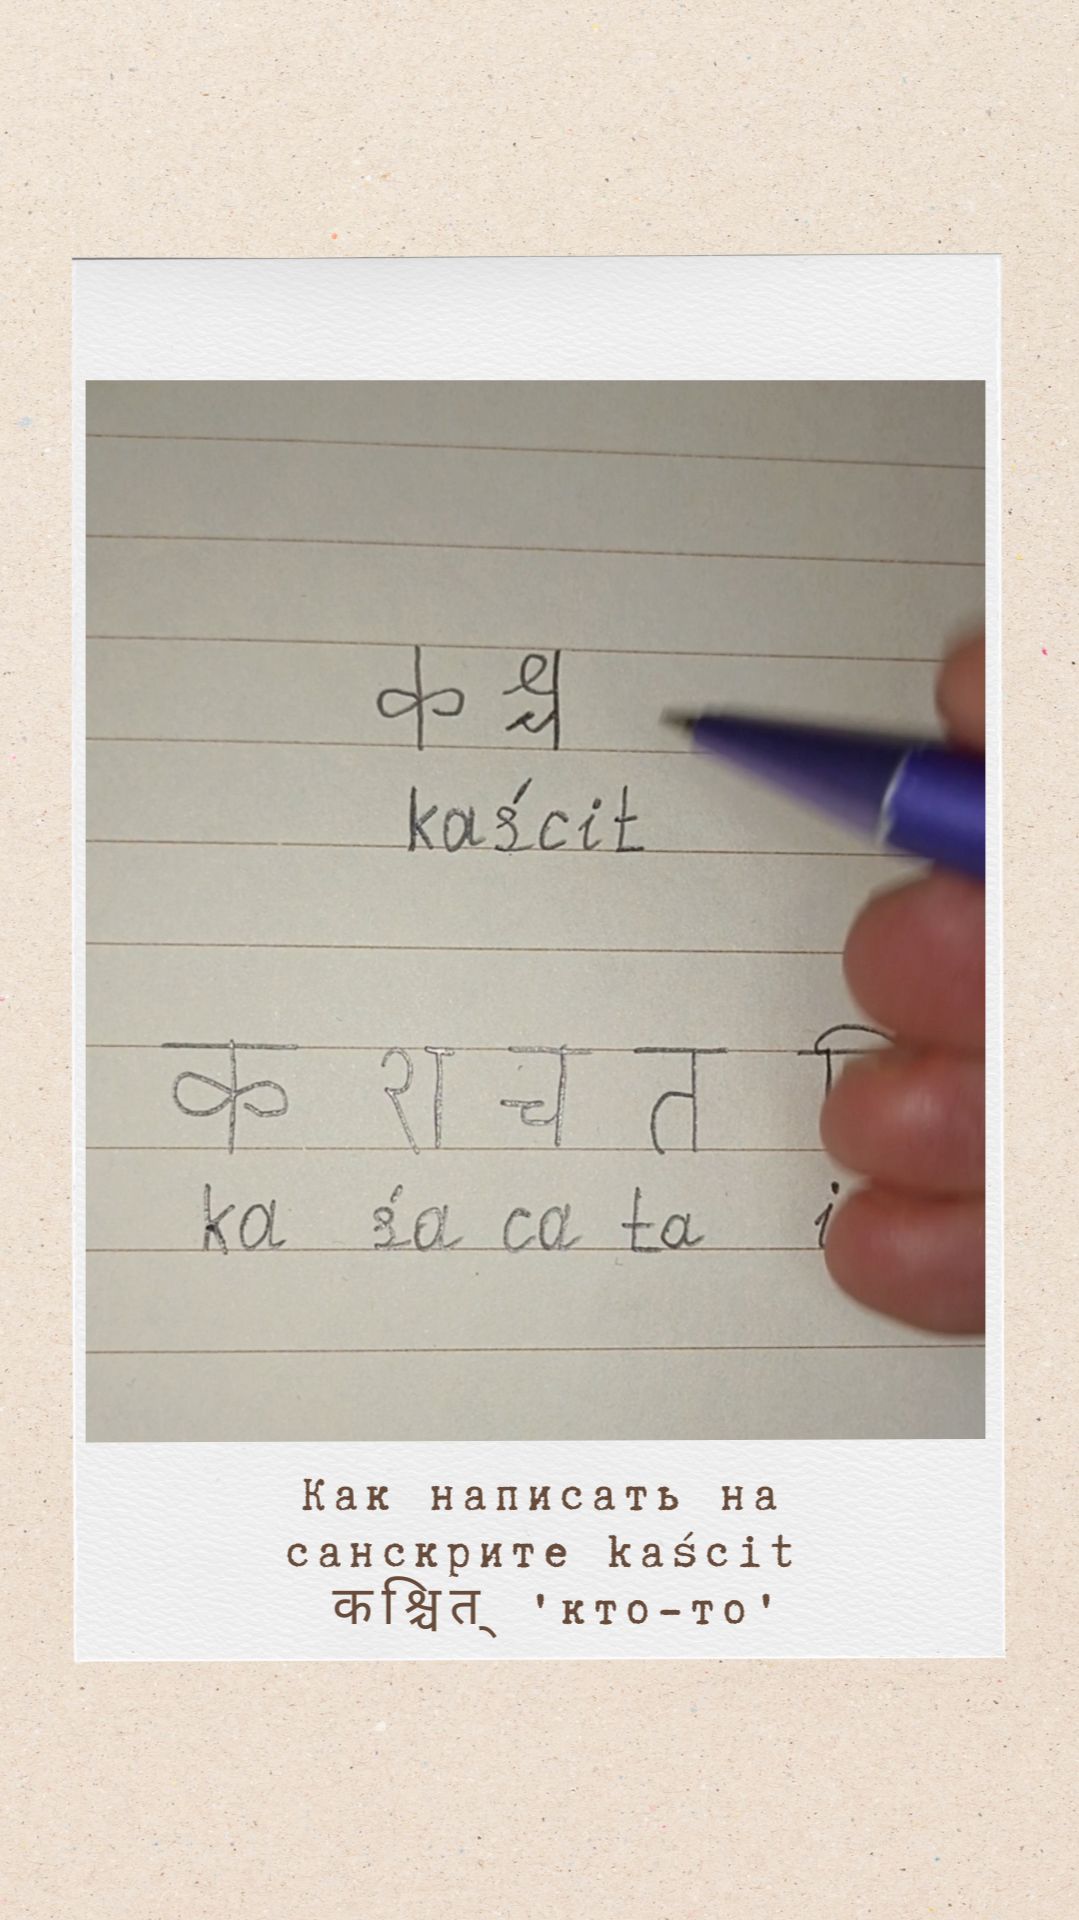 क श्च
kaścit
क श च त ि
ka śa ca ta i
Как написать на
санскрите kaścit
कश्चित् 'кто-то'